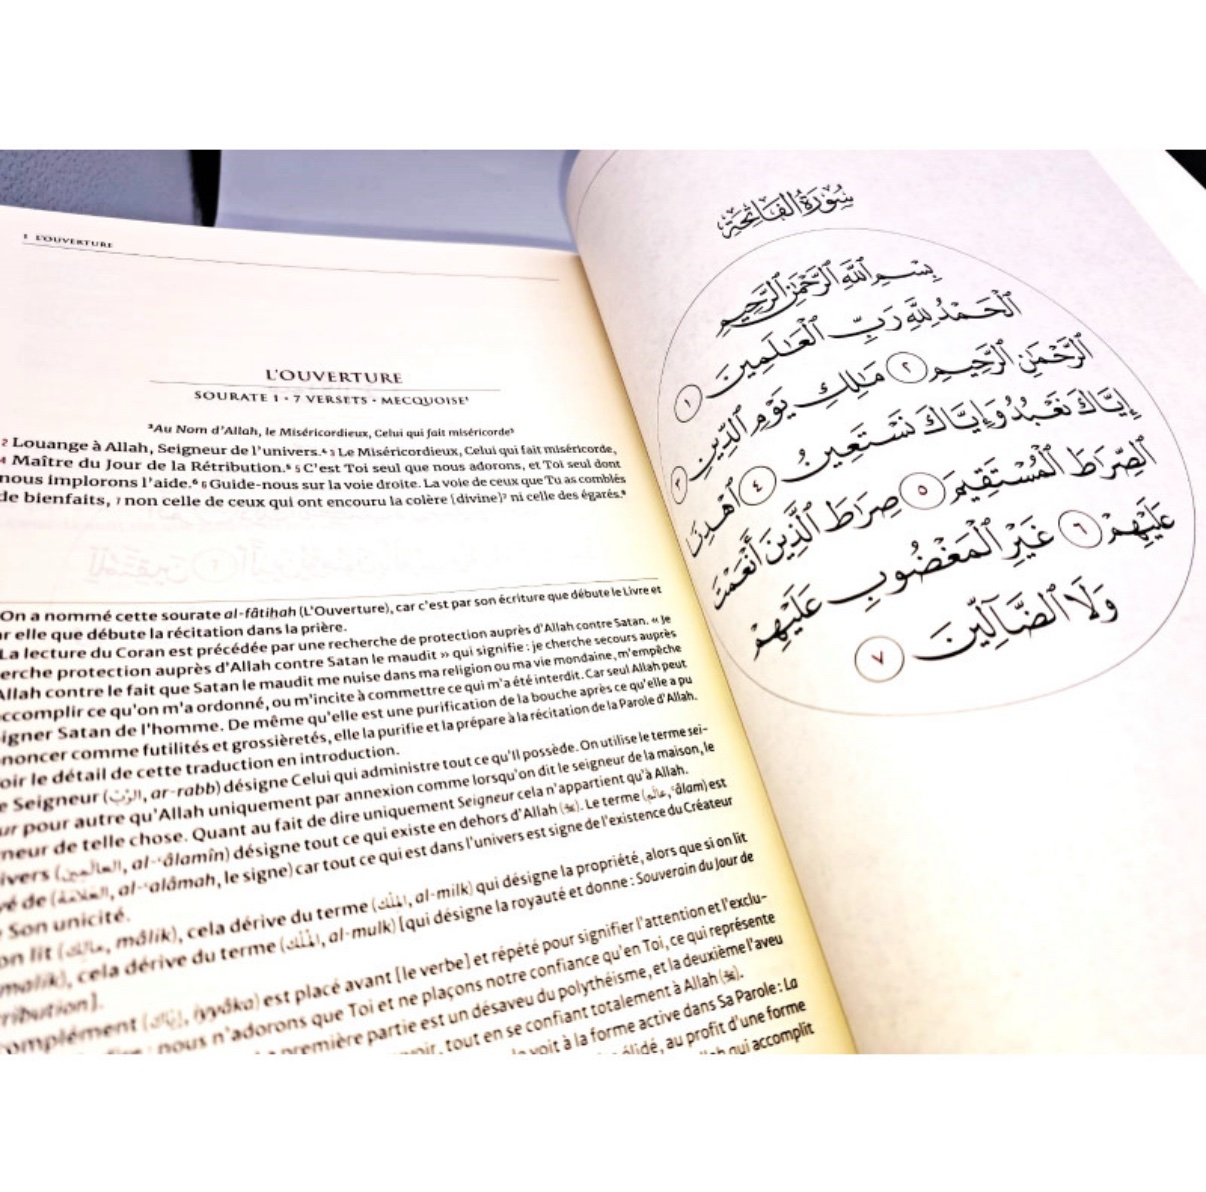 1 L'OUVERTURE
L'OUVERTURE
SOURATE 1 • 7 VERSETS • MECQUOISE¹
²Au Nom d'Allah, le Miséricordieux, Celui qui fait miséricorde³
2 Louange à Allah, Seigneur de l'univers.⁴ 3 Le Miséricordieux, Celui qui fait miséricorde,
4 Maître du Jour de la Rétribution.⁵ 5 C'est Toi seul que nous adorons, et Toi seul dont
nous implorons l'aide.⁶ 6 Guide-nous sur la voie droite. La voie de ceux que Tu as comblés
de bienfaits, 7 non celle de ceux qui ont encouru la colère [divine]⁷ ni celle des égarés.⁸
On a nommé cette sourate al-fâtiḥah (L'Ouverture), car c'est par son écriture que débute le Livre et
elle que débute la récitation dans la prière.
La lecture du Coran est précédée par une recherche de protection auprès d'Allah contre Satan. « Je
protection auprès d'Allah contre Satan le maudit » qui signifie : je cherche secours auprès
Allah contre le fait que Satan le maudit me nuise dans ma religion ou ma vie mondaine, m'empêche
ce qu'on m'a ordonné, ou m'incite à commettre ce qui m'a été interdit. Car seul Allah peut
Satan de l'homme. De même qu'elle est une purification de la bouche après ce qu'elle a pu
comme futilités et grossièretés, elle la purifie et la prépare à la récitation de la Parole d'Allah.
le détail de cette traduction en introduction.
Seigneur (الرَّبّ, ar-rabb) désigne Celui qui administre tout ce qu'Il possède. On utilise le terme sei-
pour autre qu'Allah uniquement par annexion comme lorsqu'on dit le seigneur de la maison, le
de telle chose. Quant au fait de dire uniquement Seigneur cela n'appartient qu'à Allah.
(العالمين, al-ʿâlamîn) désigne tout ce qui existe en dehors d'Allah (ﷻ). Le terme (عالم, ʿâlam) est
de (العلامة, al-ʿalâmah, le signe) car tout ce qui est dans l'univers est signe de l'existence du Créateur
Son unicité.
lit (مالك, mâlik), cela dérive du terme (الملك, al-milk) qui désigne la propriété, alors que si on lit
cela dérive du terme (الملك, al-mulk) [qui désigne la royauté et donne : Souverain du Jour de
(إياك, iyyâka) est placé avant [le verbe] et répété pour signifier l'attention et l'exclu-
nous n'adorons que Toi et ne plaçons notre confiance qu'en Toi, ce qui représente
première partie est un désaveu du polythéisme, et la deuxième l'aveu
tout en se confiant totalement à Allah (ﷻ).
voit à la forme active dans Sa Parole : La
au profit d'une forme
qui accomplit
سُورَةُ الفَاتِحَةِ
بِسْمِ اللَّهِ الرَّحْمَٰنِ الرَّحِيمِ
الْحَمْدُ لِلَّهِ رَبِّ الْعَالَمِينَ ١
الرَّحْمَٰنِ الرَّحِيمِ ٢ مَالِكِ يَوْمِ الدِّينِ ٣
إِيَّاكَ نَعْبُدُ وَإِيَّاكَ نَسْتَعِينُ ٤ اهْدِنَا
الصِّرَاطَ الْمُسْتَقِيمَ ٥ صِرَاطَ الَّذِينَ أَنْعَمْتَ
عَلَيْهِمْ ٦ غَيْرِ الْمَغْضُوبِ عَلَيْهِمْ
وَلَا الضَّالِّينَ ٧